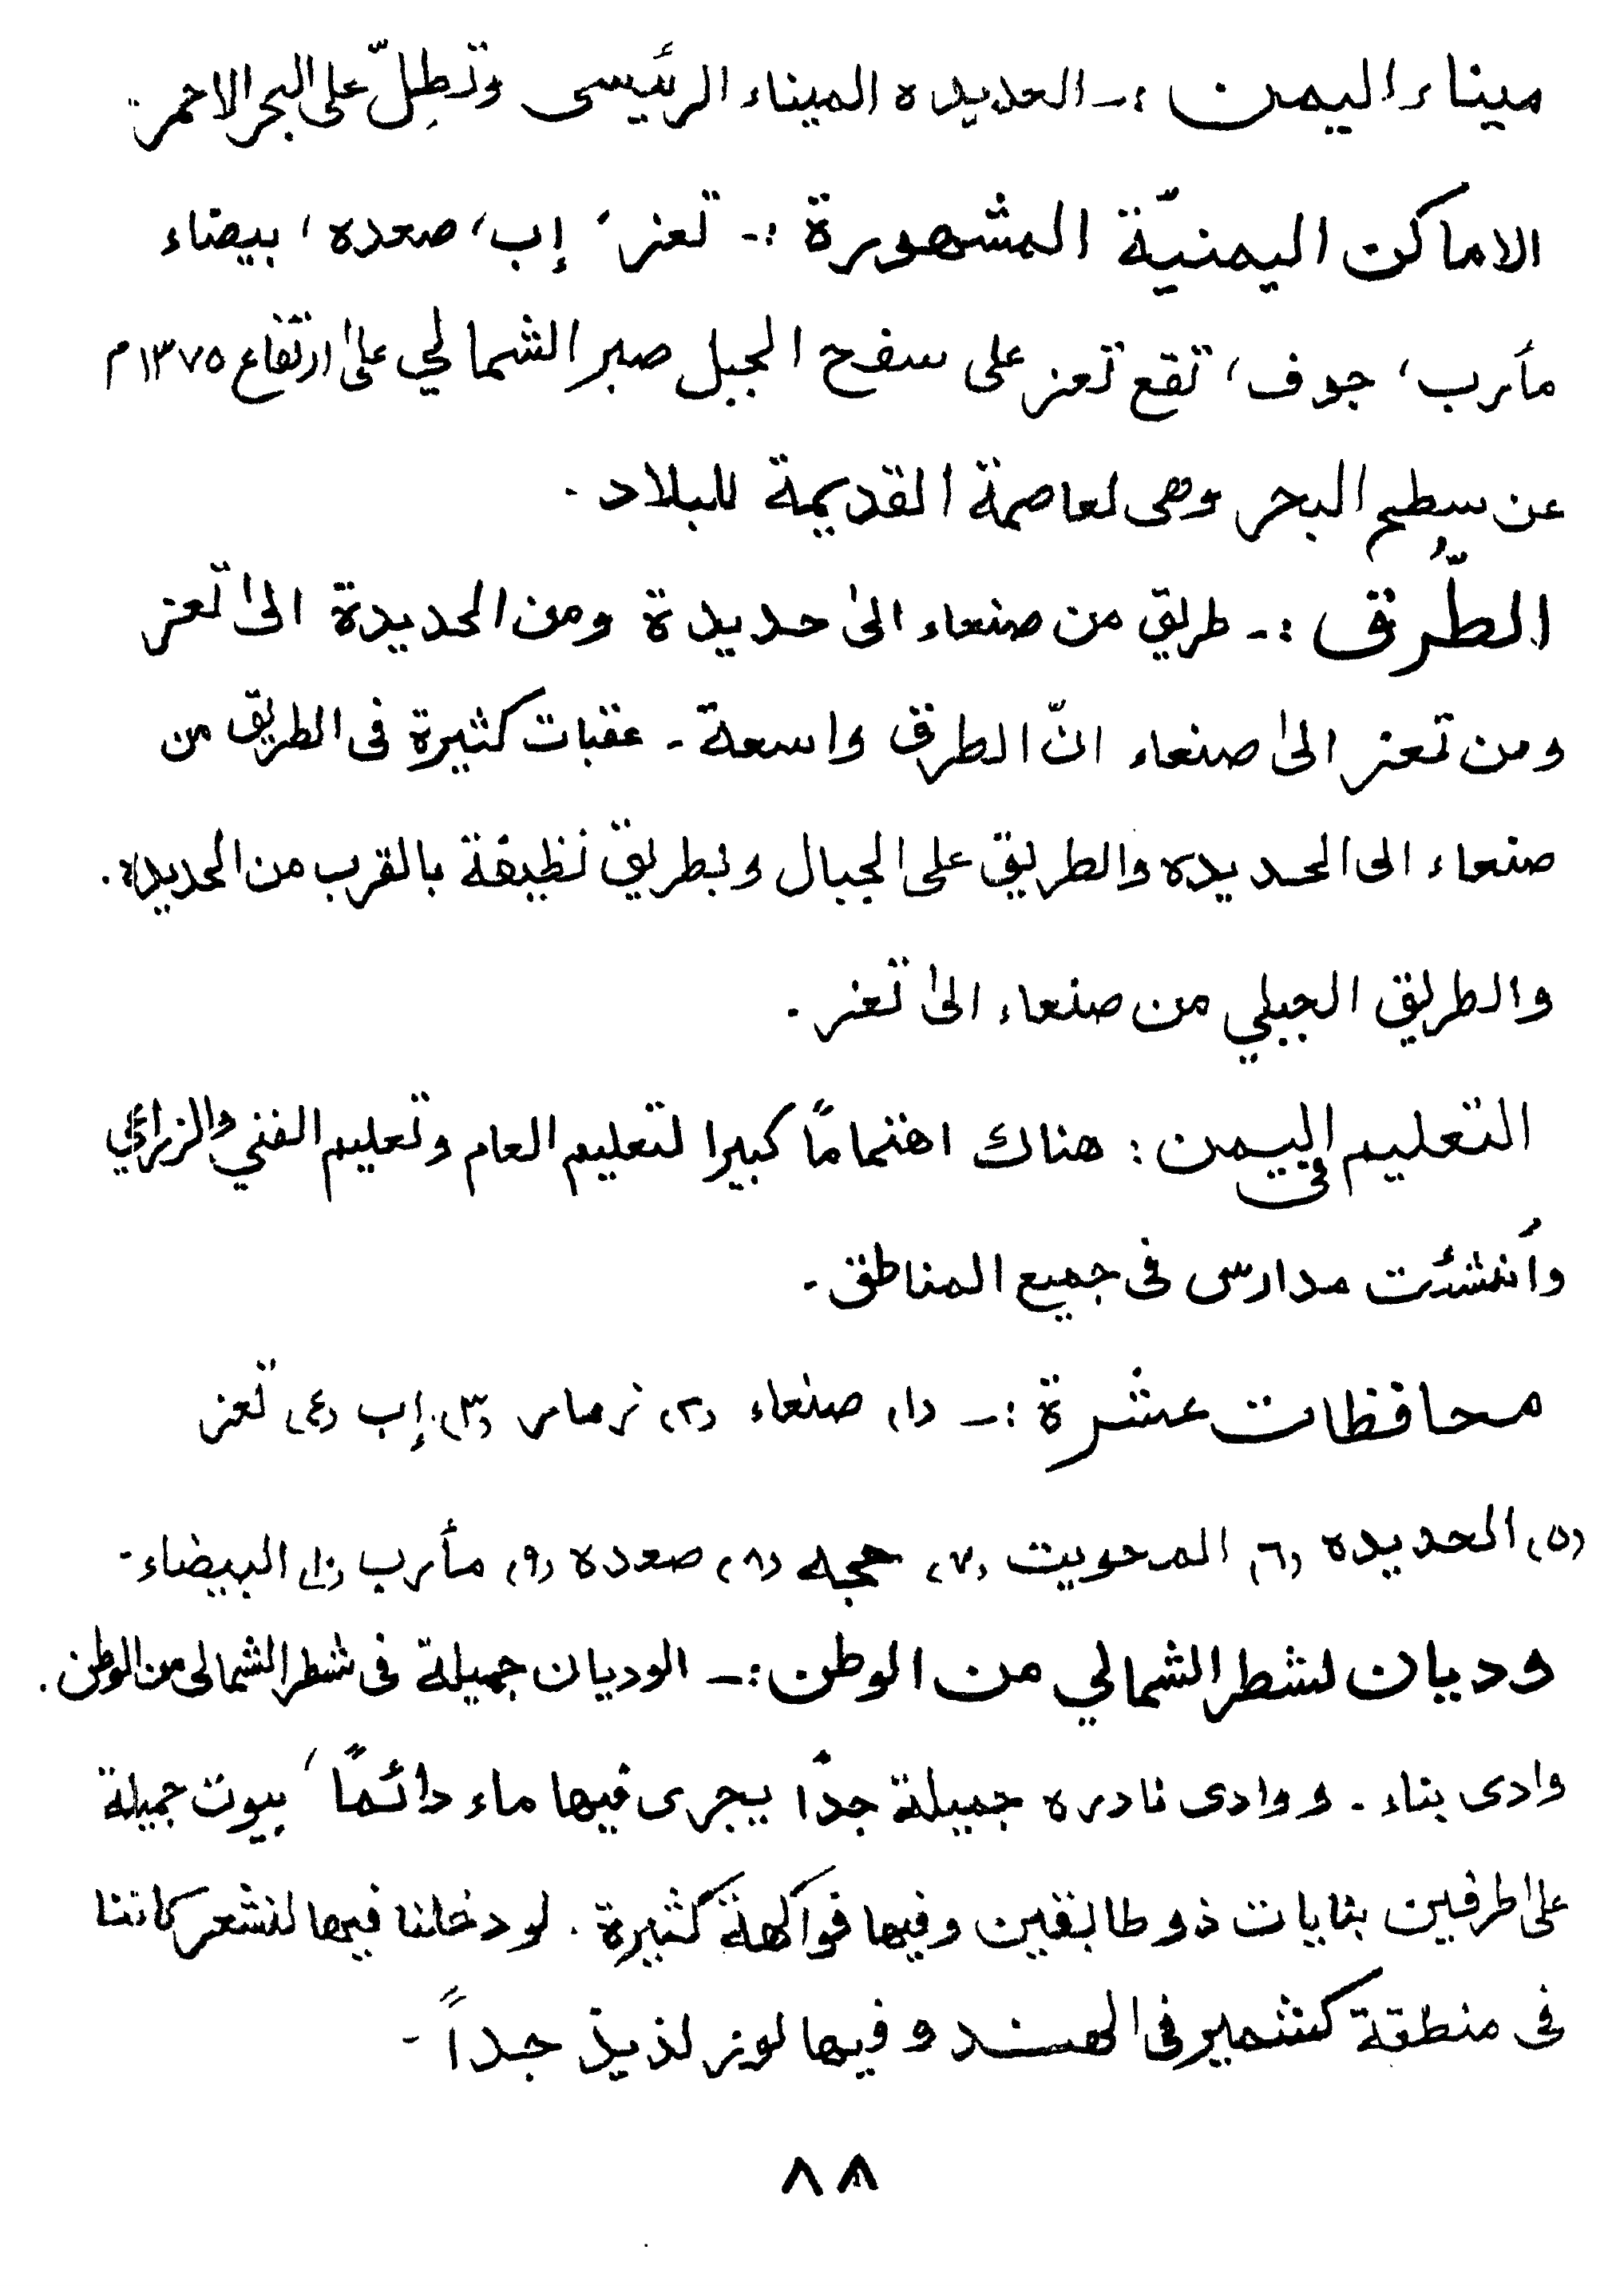 ميناء اليمن :ـ الحديده الميناء الرئيسى وتطلّ على البحر الاحمر.
الاماكن اليمنيّة المشهورة :ـ تعز، إب، صعده، بيضاء
مأرب، جوف، تقع تعز على سفح الجبل صبر الشمالي على ارتفاع ١٣٧٥م
عن سطح البحر وهى لعاصمة القديمة للبلاد -
الطُّرق :ـ طريق من صنعاء الى حديدة ومن الحديدة الى تعز
ومن تعز الى صنعاء انّ الطرق واسعة - عقبات كثيرة فى الطريق من
صنعاء الى الحديده والطريق على الجبال وبطريق نظيفة بالقرب من الحديده.
والطريق الجبلي من صنعاء الى تعز.
التعليم فى اليمن : هناك اهتماماً كبيرا لتعليم العام وتعليم الفني والزراعي
وأنشئت مدارس فى جميع المناطق -
محافظات عشرة :ـ (١) صنعاء (٢) زمار (٣) إب (٤) تعز
(٥) الحديده (٦) المحويت (٧) حجه (٨) صعده (٩) مأرب (١٠) البيضاء -
وديان لشطر الشمالي من الوطن :ـ الوديان جميلة فى شطر الشمالى من الوطن.
وادى بناء - ووادى نادره جميلة جدًا يجرى فيها ماء دائماً، بيوت جميلة
على طرفين بنايات ذو طابقين وفيها فواكهة كثيرة. لو دخلنا فيها لنشعر كاننا
فى منطقة كشمير فى الهند وفيها لوز لذيذ جداً -
٨٨